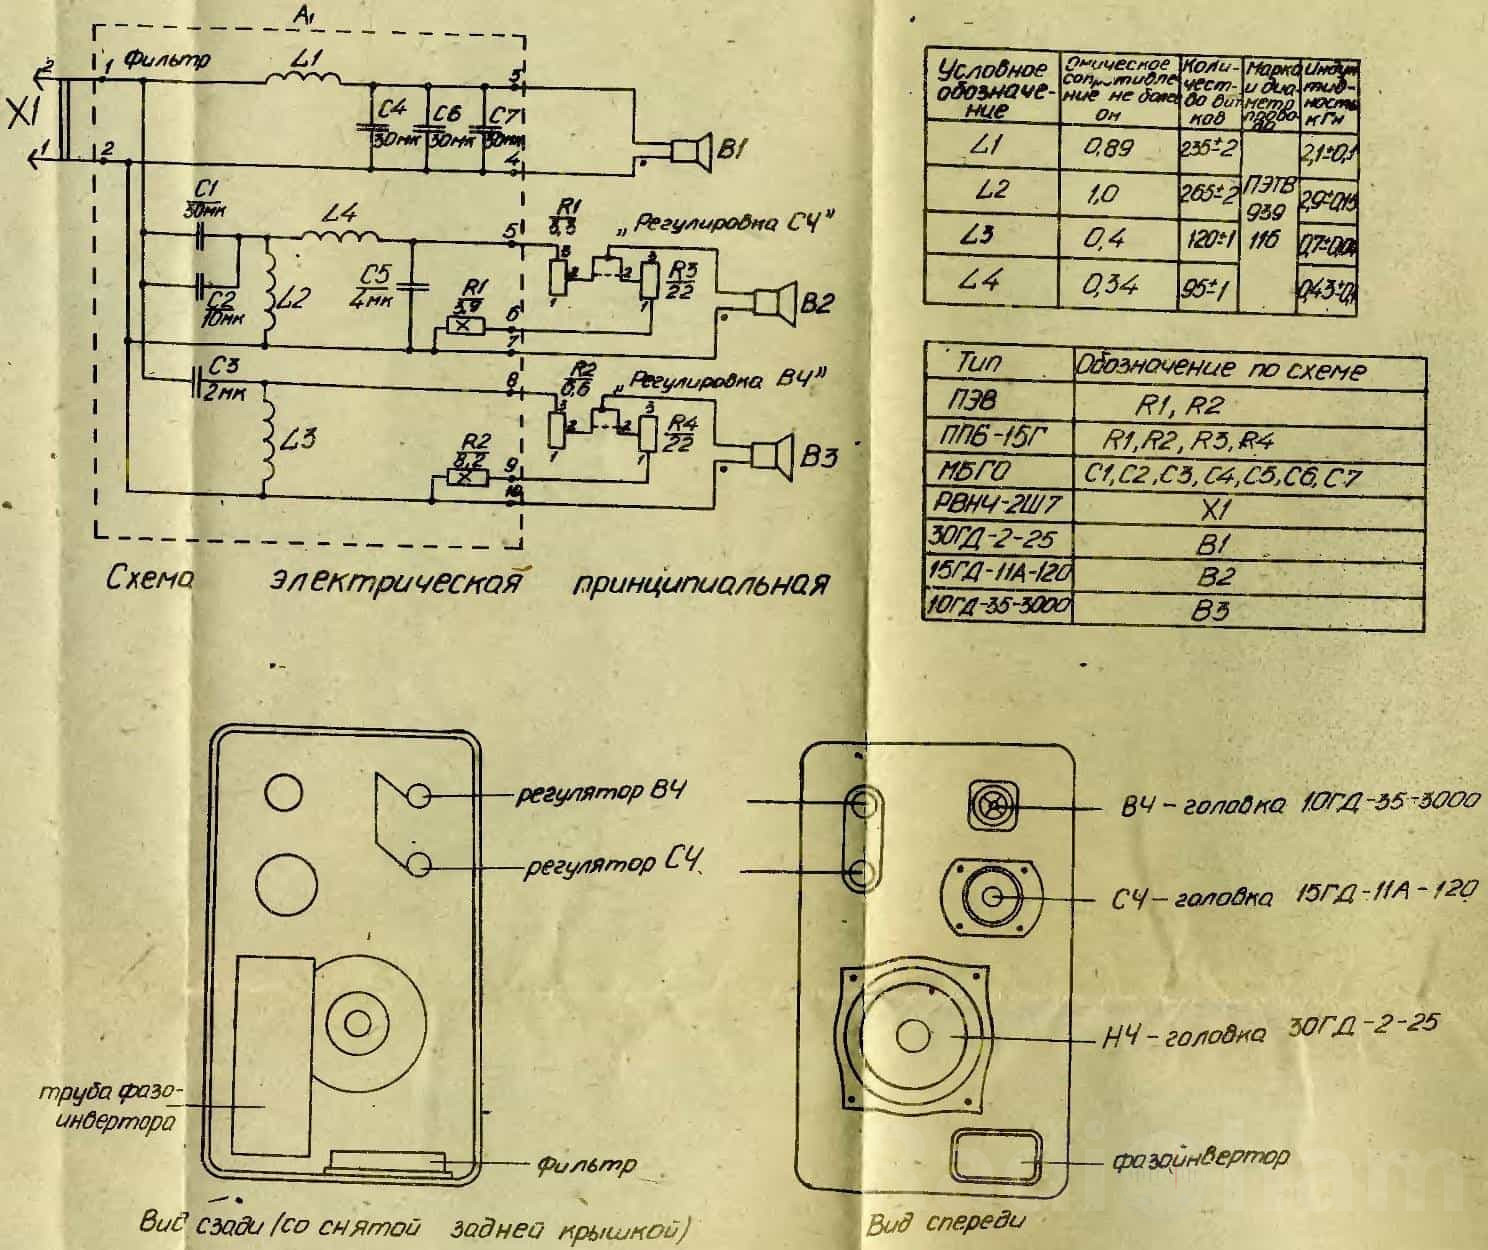 A1
Фильтр
L1
2
1
3
X1
C4
30мк
C6
30мк
C7
30мк
B1
1
2
4
C1
30мк
L4
5
R1
3,3
„Регулировка СЧ"
3
2
1
2
3
1
R3
22
C2
10мк
L2
C5
4мк
R1
39
6
7
B2
C3
2мк
8
R2
6,6
„Регулировка ВЧ"
3
2
1
2
3
1
R4
22
L3
R2
8,2
9
10
B3
Схема электрическая принципиальная
Условное обозначе-ние
Омическое сопротивле-ние не более ом
Коли-чест-во вит ков
Марка и диа-метр прово-
Индук тив-ность кГн
L1 0,89 235±2 2,1±0,1
L2 1,0 265±2 ПЭТВ 939 2,9±0,15
L3 0,4 120±1 116 0,7±0,04
L4 0,34 95±1
Тип Обозначение по схеме
ПЭВ R1, R2
ППБ-15Г R1, R2, R3, R4
МБГО C1, C2, C3, C4, C5, C6, C7
РВНЧ-2Ш7 X1
30ГД-2-25 B1
15ГД-11А-120 B2
10ГД-35-3000 B3
регулятор ВЧ
регулятор СЧ
труба фазо-
инвертора
фильтр
Вид сзади (со снятой задней крышкой)
ВЧ - головка 10ГД-35-3000
СЧ - головка 15ГД-11А-120
НЧ - головка 30ГД-2-25
фазоинвертор
Вид спереди